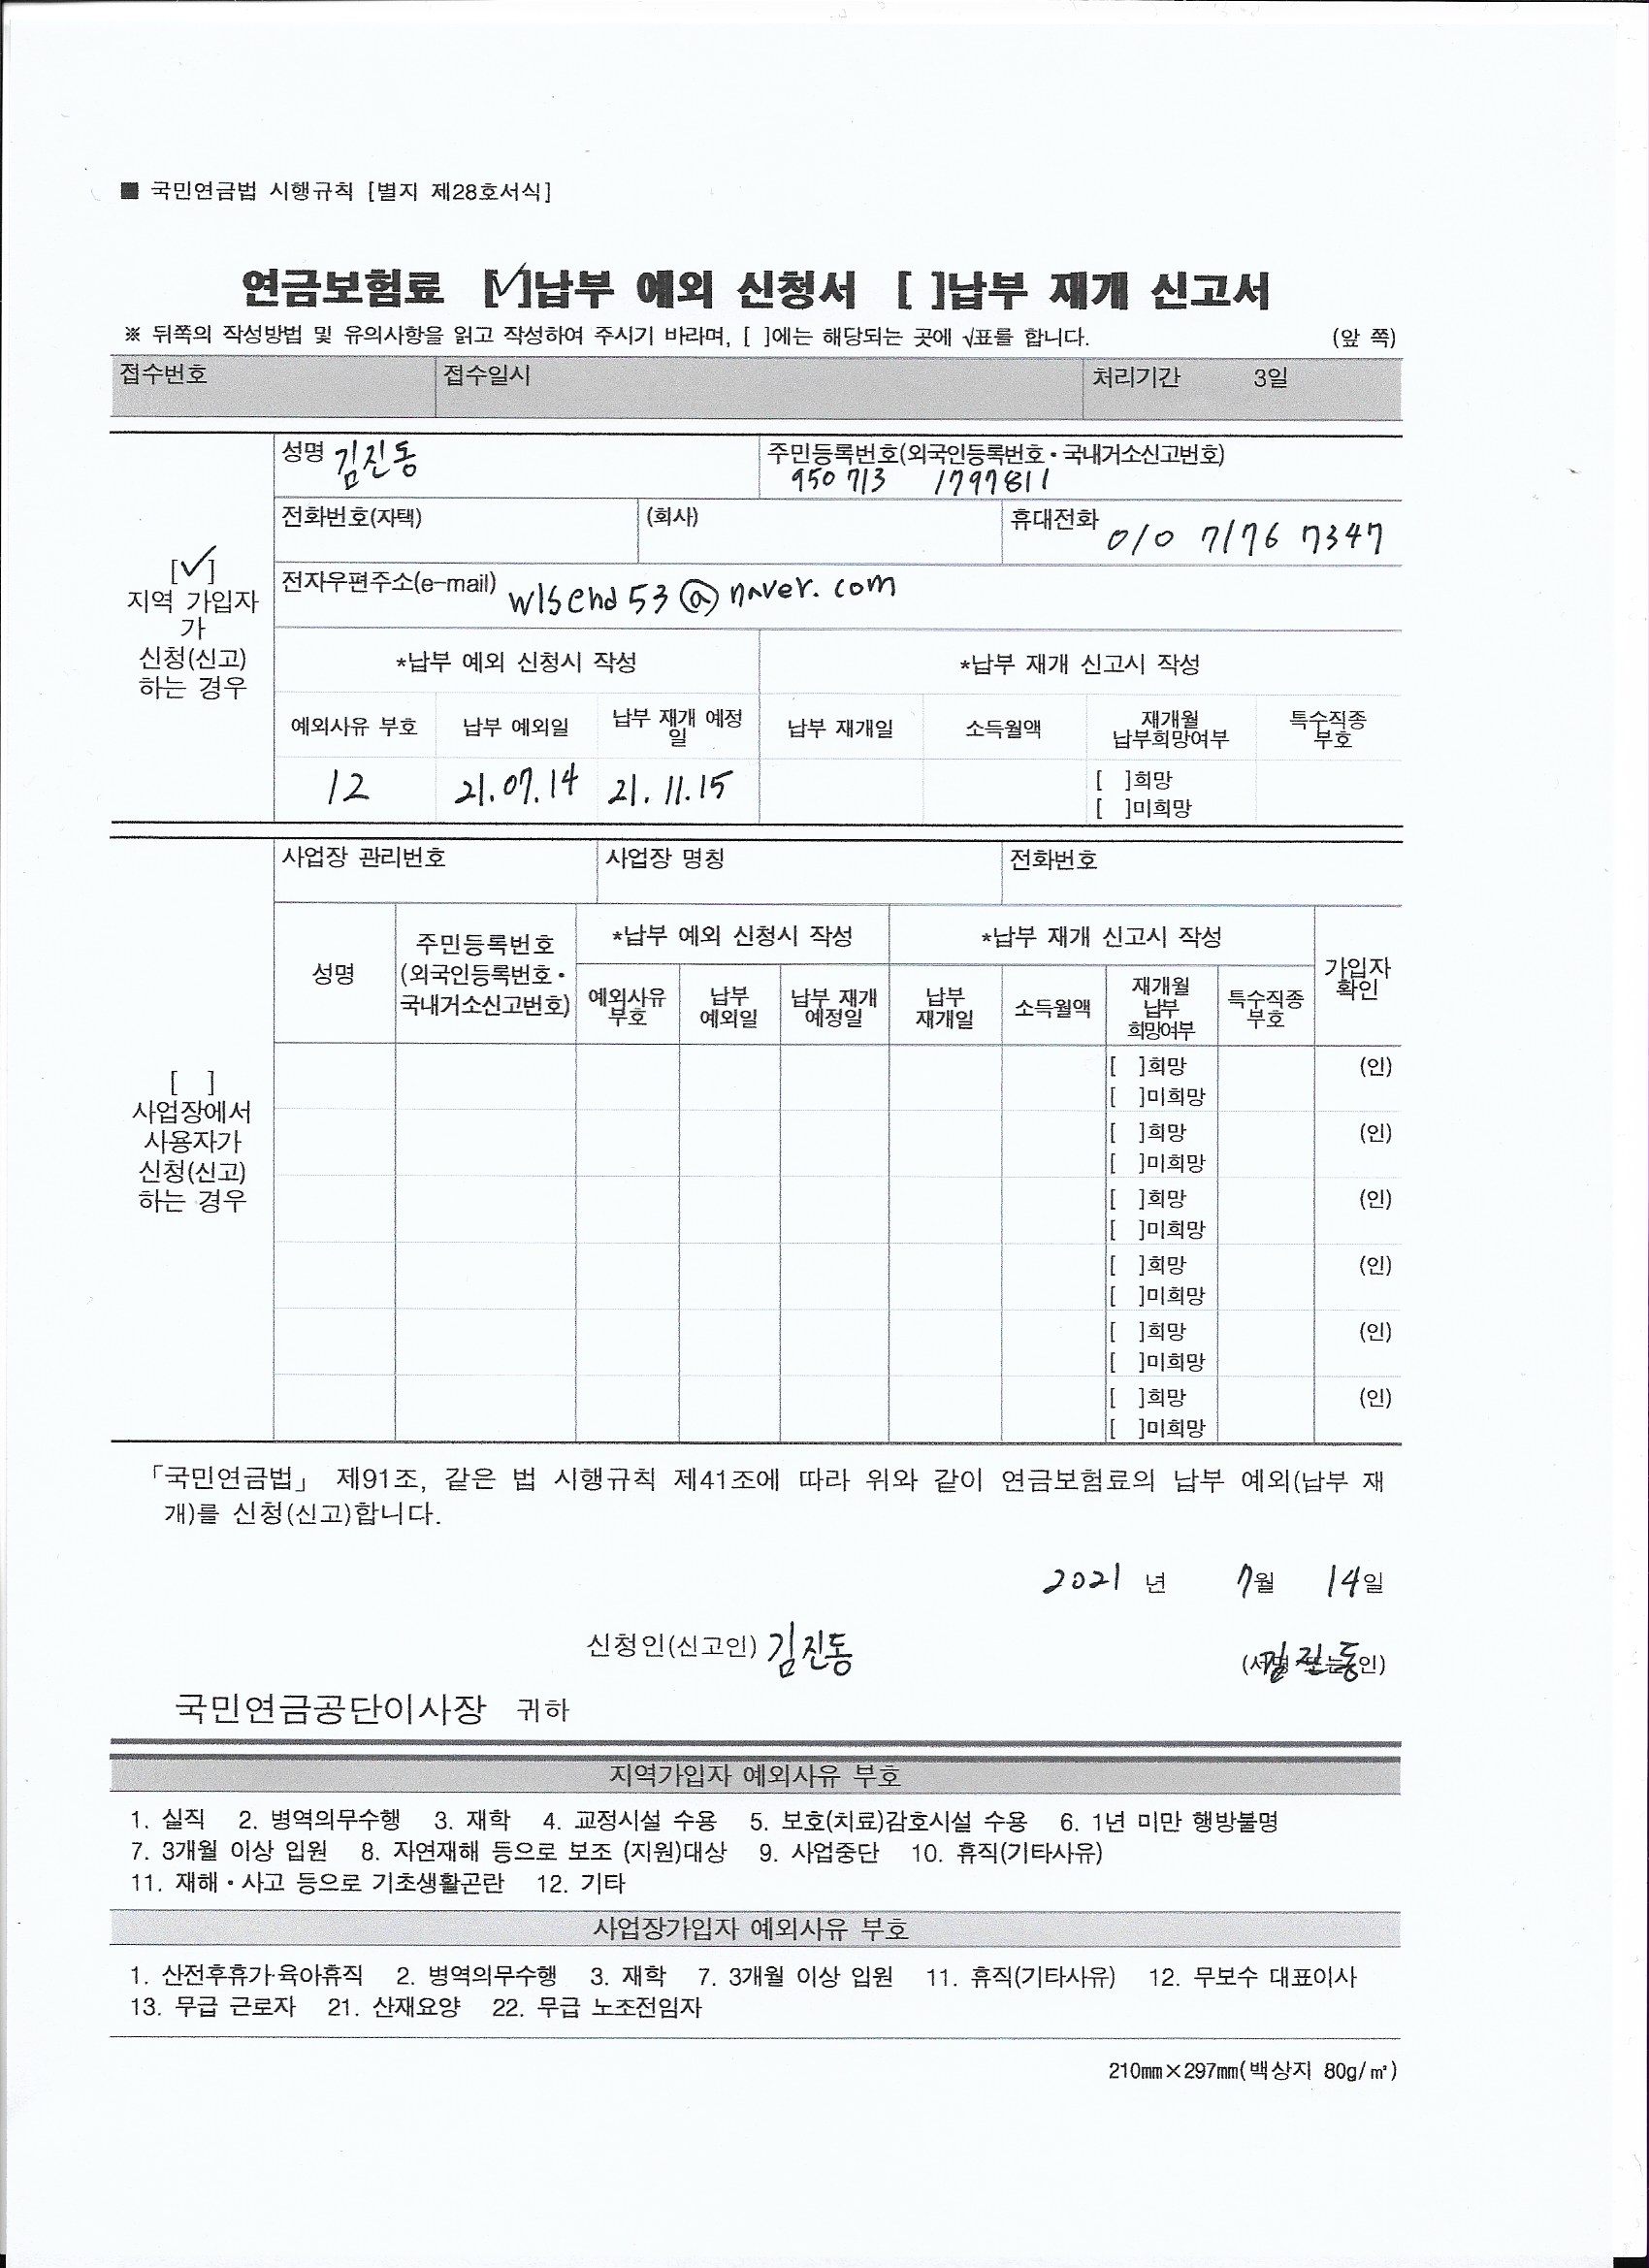 ■ 국민연금법 시행규칙 [별지 제28호서식]
연금보험료 [√]납부 예외 신청서 [ ]납부 재개 신고서
※ 뒤쪽의 작성방법 및 유의사항을 읽고 작성하여 주시기 바라며, [ ]에는 해당되는 곳에 √표를 합니다. (앞 쪽)
접수번호 접수일시 처리기간 3일
[√]
지역 가입자
가
신청(신고)
하는 경우
성명 김진동 주민등록번호(외국인등록번호·국내거소신고번호)
950713 1797811
전화번호(자택) (회사) 휴대전화 010 7176 7347
전자우편주소(e-mail) wlsend53@naver.com
*납부 예외 신청시 작성 *납부 재개 신고시 작성
예외사유 부호 납부 예외일 납부 재개 예정일 납부 재개일 소득월액 재개월 납부희망여부 특수직종 부호
12 21.07.14 21.11.15 [ ]희망
[ ]미희망
사업장 관리번호 사업장 명칭 전화번호
[ ]
사업장에서
사용자가
신청(신고)
하는 경우
성명 주민등록번호(외국인등록번호·국내거소신고번호) *납부 예외 신청시 작성 *납부 재개 신고시 작성 가입자 확인
예외사유 부호 납부 예외일 납부 재개 예정일 납부 재개일 소득월액 재개월 납부 희망여부 특수직종 부호
[ ]희망 (인)
[ ]미희망
[ ]희망 (인)
[ ]미희망
[ ]희망 (인)
[ ]미희망
[ ]희망 (인)
[ ]미희망
[ ]희망 (인)
[ ]미희망
[ ]희망 (인)
[ ]미희망
「국민연금법」 제91조, 같은 법 시행규칙 제41조에 따라 위와 같이 연금보험료의 납부 예외(납부 재
개)를 신청(신고)합니다.
2021 년 7월 14일
신청인(신고인) 김진동 (서명 또는 인) 김진동
국민연금공단이사장 귀하
지역가입자 예외사유 부호
1. 실직 2. 병역의무수행 3. 재학 4. 교정시설 수용 5. 보호(치료)감호시설 수용 6. 1년 미만 행방불명
7. 3개월 이상 입원 8. 자연재해 등으로 보조 (지원)대상 9. 사업중단 10. 휴직(기타사유)
11. 재해·사고 등으로 기초생활곤란 12. 기타
사업장가입자 예외사유 부호
1. 산전후휴가·육아휴직 2. 병역의무수행 3. 재학 7. 3개월 이상 입원 11. 휴직(기타사유) 12. 무보수 대표이사
13. 무급 근로자 21. 산재요양 22. 무급 노조전임자
210㎜×297㎜(백상지 80g/㎡)